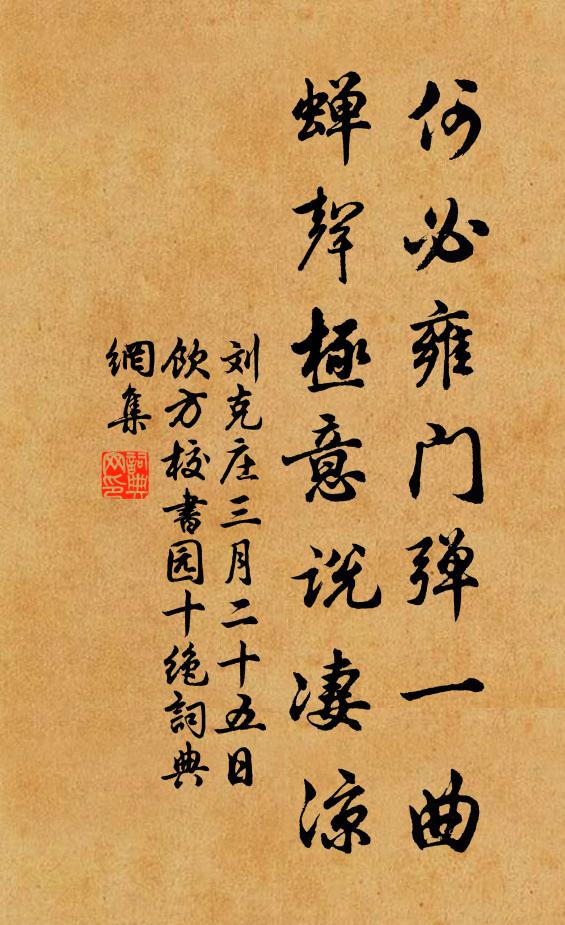 何必雍门弹一曲
蝉聲極意説凄凉
刘克庄三月二十五日
饮方校书园十绝詞典
網集
詞典
网印